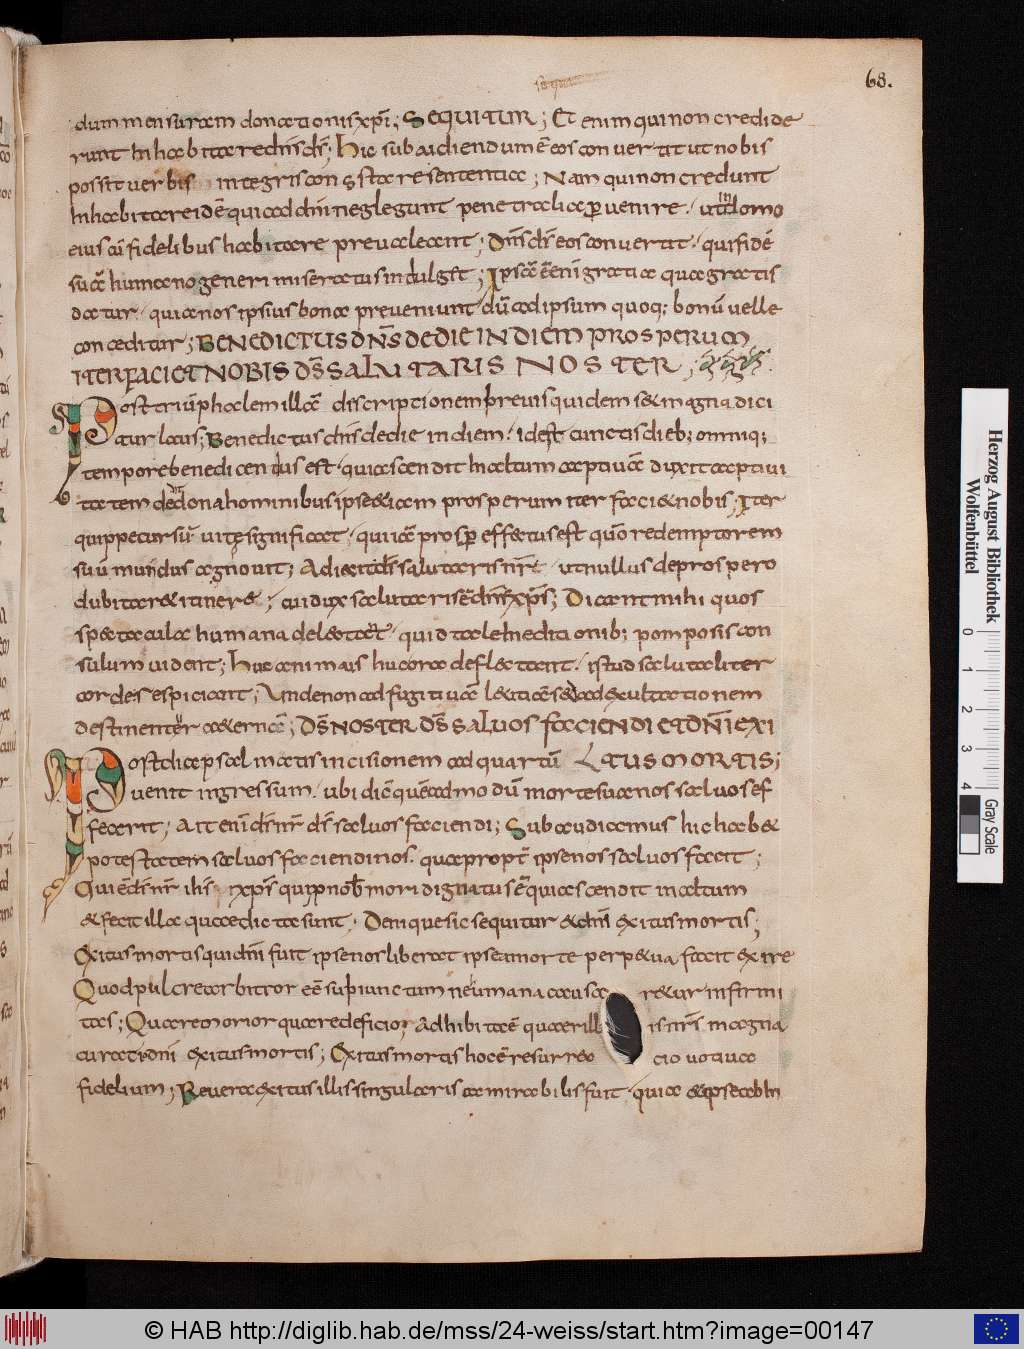 68.
dum mensuram donationis xp̄i; SEQUITUR; Et enim qui non credide
runt Inhabitare dn̄s dī; Hic subaudiendum ē eos convertit ut nobis
possit verbis integris constare sententia; Nam qui non credunt
Inhabitare idē qui ad dn̄i neglegunt penetralia p̄venire. ut In domo
eius cū fidelibus habitare prevaleant; Dn̄s dī eos convertat. qui fidē
suā humano generi miseratus indulget; Ipsā ē enī gratia quae gratis
datur. quia nos ipsius bona preveniunt dū ad ipsum quoq; bonū velle
conceditur; BENEDICTUS DN̄S DE DIE IN DIEM PROSPERUM
ITER FACIET NOBIS DS̄ SALUTARIS NOSTER;
Post triūphalem illā discriptionem brevis quidem s& magna dici
tur laus; Benedictus dn̄s de die in diem. id est cunctis dieb; omniq;
tempore benedicendus est. quia ascendit In altum captivā duxit captivi
tatem dedit dona hominibus ipse &iam prosperum iter faci& nobis; Iter
quippe cursū vitę significat. qui iā prosp̄ effectus est quō redemptorem
suū mundus agnovit; Adiecit ds̄ salutaris nr̄. ut nullus de prospero
dubitar& itinere; cui dux salutaris ē dn̄s xp̄s; Dicant mihi quos
spectacula humana delectat. quid tale In editionib; pomposis con
sulum vident; Huc animas huc ora deflectant. istud salutaliter
cordes espiciant; Unde non ad fugitivā laetitiā sed ad exultationem
destinentur aeternā; DS̄ NOSTER DS̄ SALUOS FACIENDI ET DN̄I EXI
Post diapsalmatis incisionem ad quartū TUS MORTIS;
venit ingressum. ubi dicē quēadmodū morte sua nos salvos ef
fecerit; Ait enī dī nr̄ dī salvos faciendi; Sub audiamus hic hab&
potestatem salvos faciendi nos. quapropt̄ ipse nos salvos facit;
Qui ē dī nr̄ ihs xp̄s qui p nob mori dignatus ē quia ascendit in altum
& fecit illa quae dicta sunt. Denique sic sequitur & dn̄i exitus mortis;
Exitus mortis qui dn̄i fuit ipse nos liberat ipse a morte perpetua facit exire
Quod pulcre arbitror eē suṗiunctum ne umana causa retur infirmi
tas; Quare morior quare deficio? Adhibitae quaerill is nr̄is magna
curatio dn̄i exitus mortis; Exitus mortis hoc ē resurrec cio votiva
fidelium; Revera exitus illis singularis a mirabilis fuit. quia & ipse ab In
Herzog August Bibliothek
Wolfenbüttel
0 1 2 3 4
Gray Scale
© HAB http://diglib.hab.de/mss/24-weiss/start.htm?image=00147